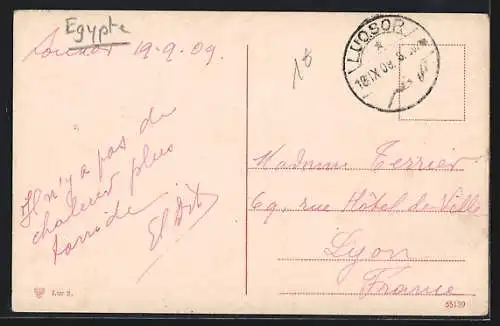 Egypte
Louxor 19-9-09
LUQSOR
18 IX 09
Il n'y a pas de
chaleur plus
torride
Madame Terrier
69, rue Hôtel de Ville
Lyon
France
55139